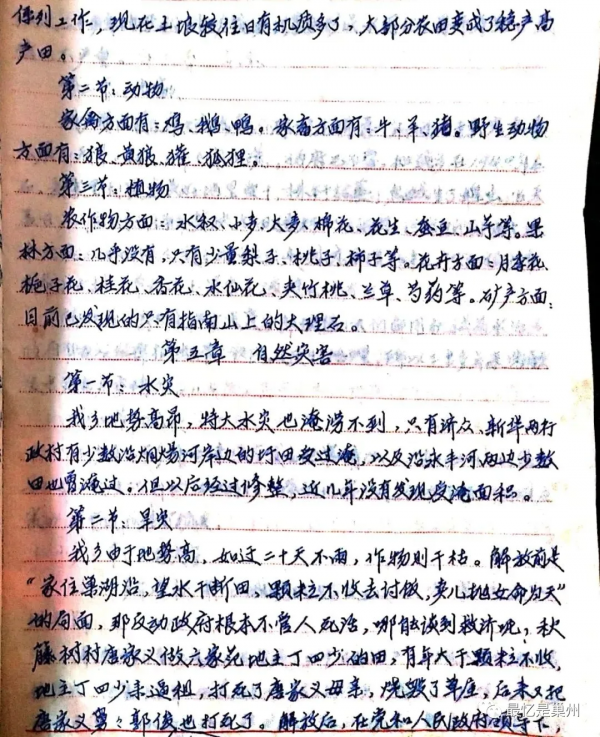 系列工作，现在土坡较往日有机质多了，大部分农田变成了稳产高
产田。
第二节：动物
家禽方面有：鸡、鹅、鸭。家畜方面有：牛、羊、猪。野生动物
方面有：狼、黄狼、獾、狐狸。
第三节：植物
农作物方面：水稻、小麦、大麦、棉花、花生、蚕豆、山芋等。果
林方面：几乎没有，只有少量梨子、桃子、柿子等。花卉方面：月季花、
栀子花、桂花、香花、水仙花、夹竹桃、兰草、芍药等。矿产方面：
目前已发现的只有指南山上的大理石。
第五章 自然灾害
第一节：水灾
我乡地势高昂，特大水灾也淹涝不到，只有济众、新华两行
政村有少数沿烔炀河岸边的圩田受过淹，以及沿永丰河两边少数
田也曾淹过。但以后经过修整，近几年没有发现受淹面积。
第二节：旱灾
我乡由于地势高，如过二十天不雨，作物则干枯。解放前是
“家住巢湖沿，望水干断田，颗粒不收去讨饭，卖儿抛女命为天”
的局面，那反动政府根本不管人死活，哪能谈到救济呢？秋
藤树村唐家义做六家苑地主丁四少的田，有年大干颗粒不收，
地主丁四少来逼租，打死了唐家义母亲，烧毁了草屋，后来又把
唐家义舅々郭俊也打死了。解放后，在党和人民政府领导下，
最忆是巢州